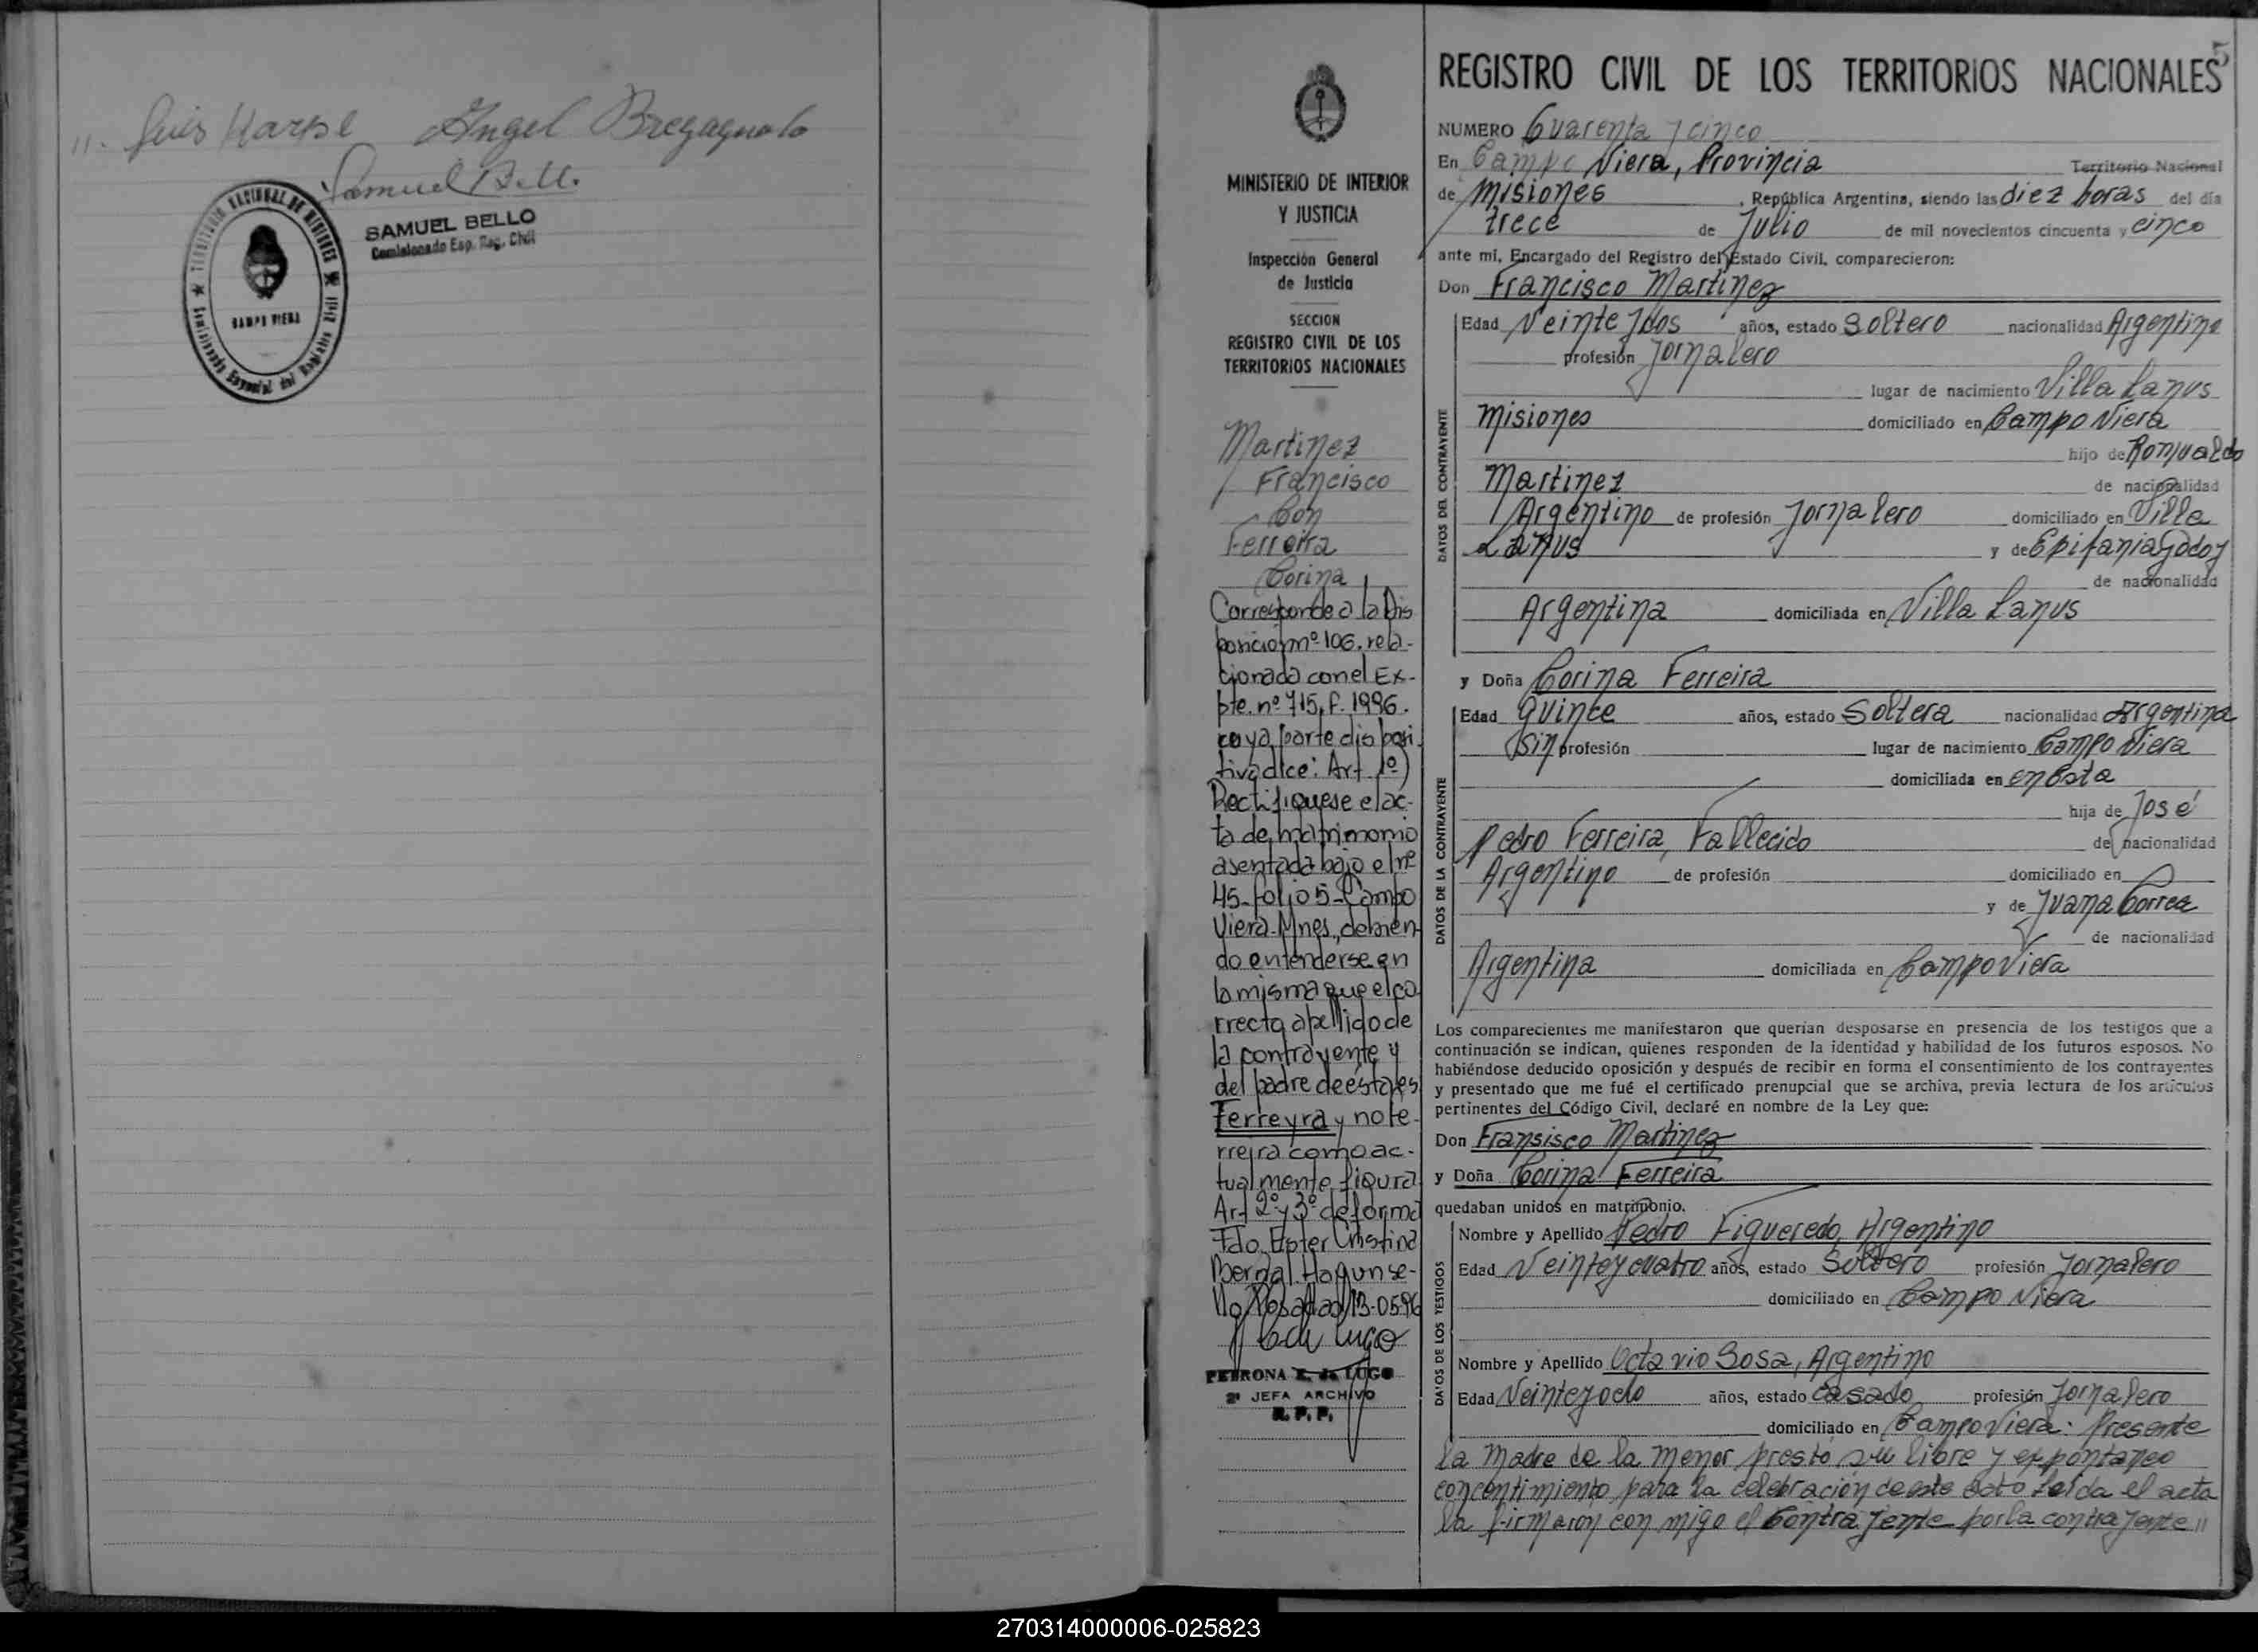 11. Luis Harpe Angel Bregagnolo
Samuel Bello
SAMUEL BELLO
Comisionado Esp. Reg. Civil
TERRITORIO NACIONAL DE MISIONES
CAMPO VIERA
Comisionado Especial del Registro Civil
MINISTERIO DE INTERIOR
Y JUSTICIA
Inspección General
de Justicia
SECCION
REGISTRO CIVIL DE LOS
TERRITORIOS NACIONALES
Martinez
Francisco
Con
Ferreira
Corina
Corresponde a la Dis
posicion nº 106, rela-
cionada con el Ex-
pte. nº 715, f. 1996.
cuya parte disposi
tiva dice: Art. 1º)
Rectifiquese el ac-
ta de matrimonio
asentada bajo el nº
45-folio 5-Campo
Viera-Mnes, debien
do entenderse en
la misma que el co
rrecto apellido de
la contrayente y
del padre de ésta es
Ferreyra y no Fe-
rreira como ac-
tualmente figura
Art 2º y 3º de forma
Fdo. Ester Cristina
Bernal. Hay un se-
llo Posadas 13-05-96
PETRONA E. de LUGO
2ª JEFA ARCHIVO
R. P. P.
5
REGISTRO CIVIL DE LOS TERRITORIOS NACIONALES
NUMERO Cuarenta y cinco
En Campo Viera, Provincia Territorio Nacional
de Misiones, República Argentina, siendo las diez horas del día
trece de Julio de mil novecientos cincuenta y cinco
ante mi, Encargado del Registro del Estado Civil, comparecieron:
Don Francisco Martinez
DATOS DEL CONTRAYENTE
Edad Veinte y dos años, estado Soltero nacionalidad Argentino
profesión Jornalero
lugar de nacimiento Villa Lanus
Misiones domiciliado en Campo Viera
hijo de Romualdo
Martinez de nacionalidad
Argentino de profesión Jornalero domiciliado en Villa
Lanus y de Epifania Godoy
de nacionalidad
Argentina domiciliada en Villa Lanus
y Doña Corina Ferreira
DATOS DE LA CONTRAYENTE
Edad Quince años, estado Soltera nacionalidad Argentina
Sin profesión lugar de nacimiento Campo Viera
domiciliada en en Esta
hija de José
Pedro Ferreira, Fallecido de nacionalidad
Argentino de profesión domiciliado en
y de Juana Correa
de nacionalidad
Argentina domiciliada en Campo Viera
Los comparecientes me manifestaron que querían desposarse en presencia de los testigos que a
continuación se indican, quienes responden de la identidad y habilidad de los futuros esposos. No
habiéndose deducido oposición y después de recibir en forma el consentimiento de los contrayentes
y presentado que me fué el certificado prenupcial que se archiva, previa lectura de los artículos
pertinentes del Código Civil, declaré en nombre de la Ley que:
Don Fransisco Martinez
y Doña Corina Ferreira
quedaban unidos en matrimonio.
DATOS DE LOS TESTIGOS
Nombre y Apellido Pedro Figueredo, Argentino
Edad Veinte y cuatro años, estado Soltero profesión Jornalero
domiciliado en Campo Viera
Nombre y Apellido Octavio Sosa, Argentino
Edad Veinte y ocho años, estado Casado profesión Jornalero
domiciliado en Campo Viera: Presente
la Madre de la menor presto su libre y expontaneo
concentimiento para la celebración de este acto Leida el acta
la firmaron con migo el Contrayente por la contrayente 11
270314000006-025823